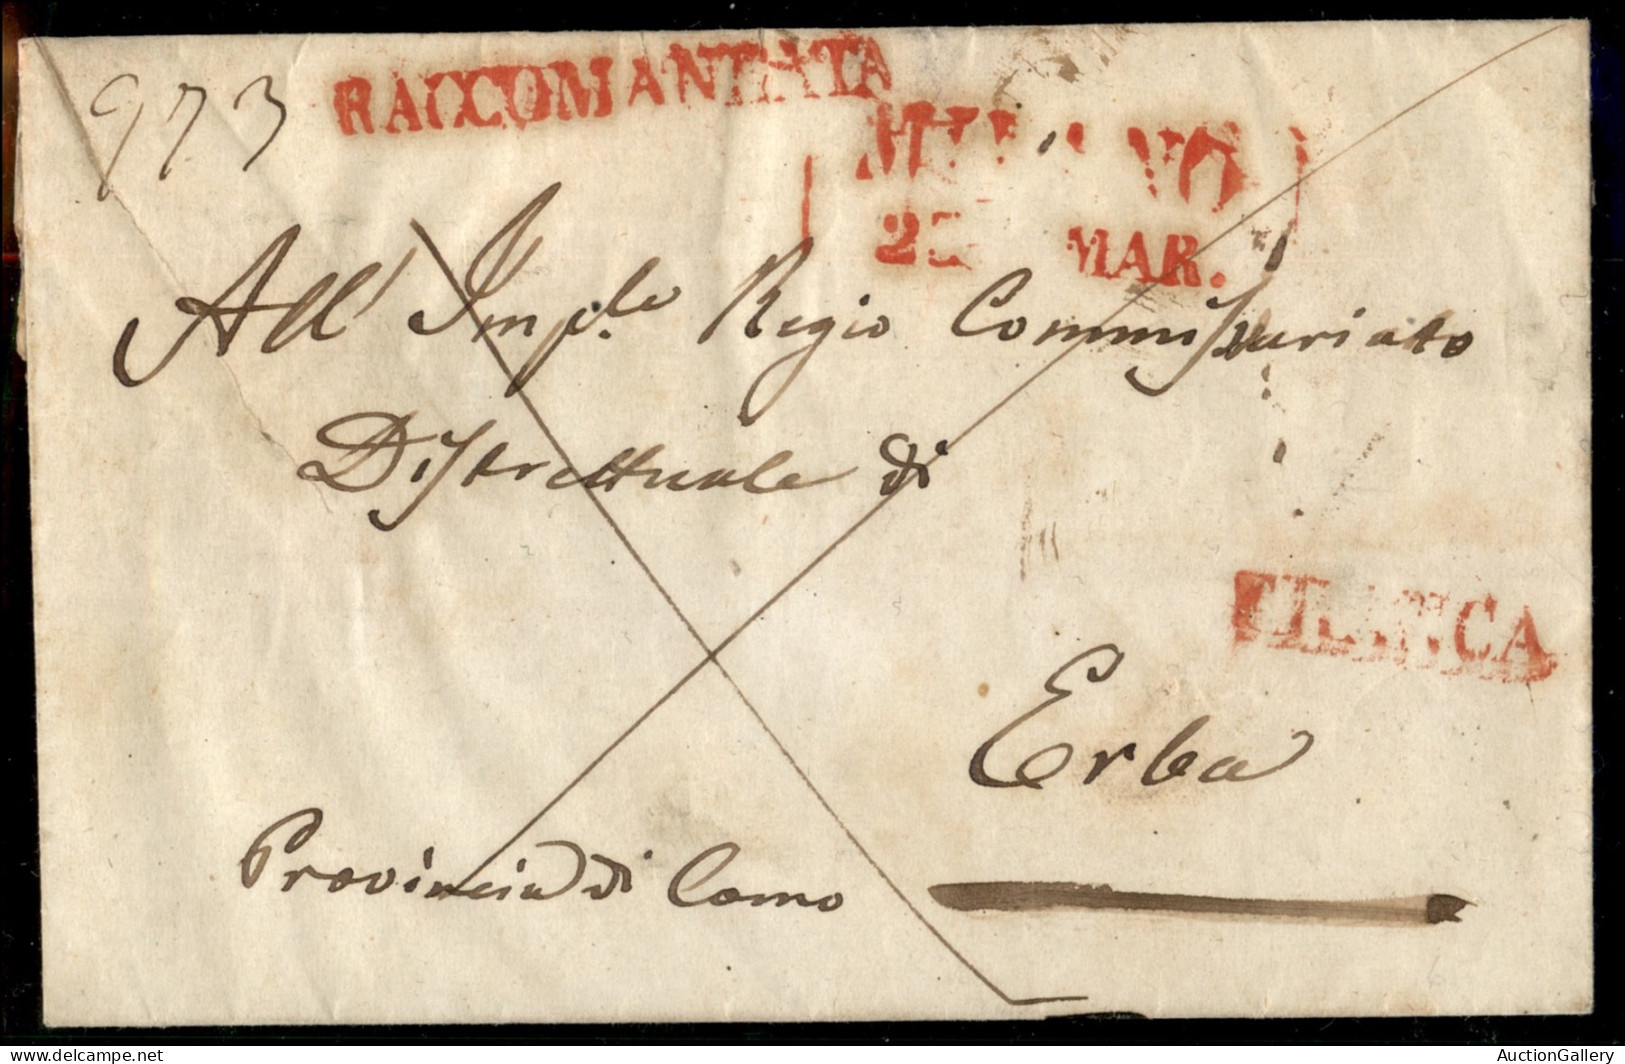 973 RACCOMANDATA
MILANO
2 MAR.
All' Imp.le Regio Commissariato
Distrettuale di
FRANCA
Erba
Provincia di Como
6
delcampe.net
AuctionGallery